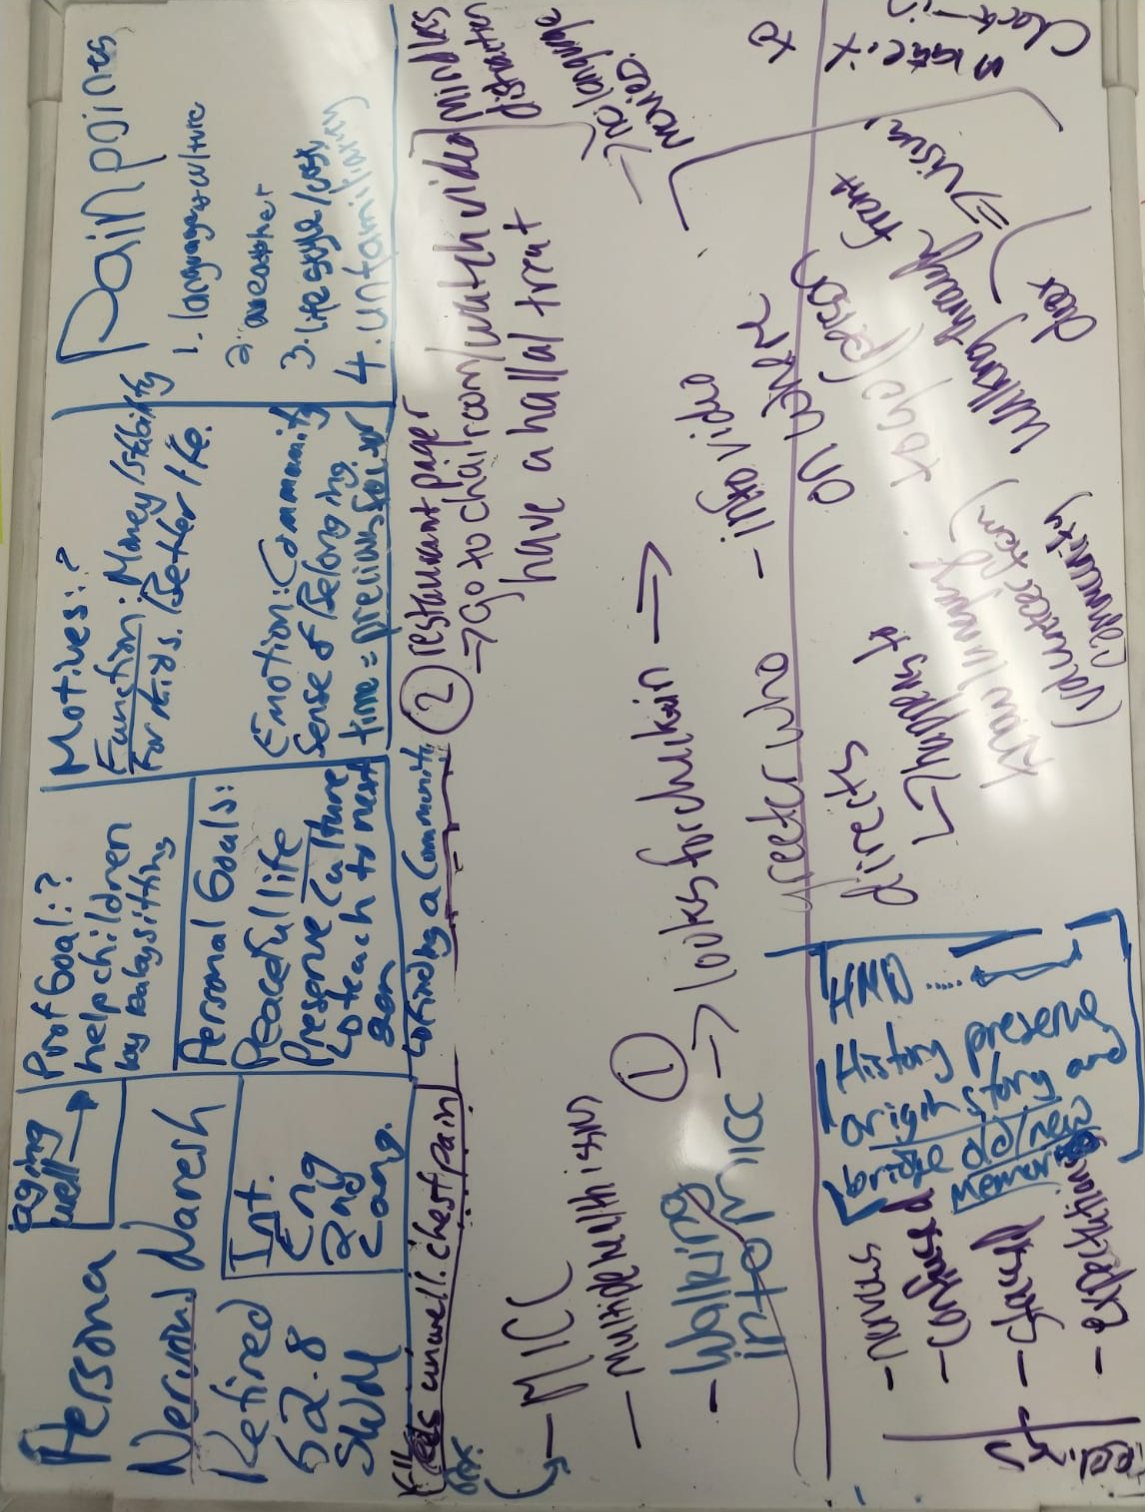 Persona
aging
well
Naresh
Retired
62.8
Int.
Eng
2nd
Lang.
Prof Goal:?
help children
by babysitting
Personal Goals:
Peaceful life
Preserve Culture
to teach to next
gen
Motives:?
Function: Money/stability
For kids. Better life.
Emotion: Community
Sense of Belonging.
time = previous
Painpoints
1. language+culture
2. weather
3. life style/cost
4. unfamiliarity
feels unwell. chest pain
finding a community
② restaurant pager
→ go to chair room/watch video
have a hallal treat
mindless
distraction
→ no language
movies.
→ MICC
- multiple health issues
- Walking
into MICC
①
→ looks for check in →
greeter who
directs
- info video
on where
to
→ happens to
know
(volunteer from
community
Walking through front
door
⇒ visual
- Nervous
- Confused
-
- expectations
HMD .....
History preserve
origin story and
bridge old/new
Memories